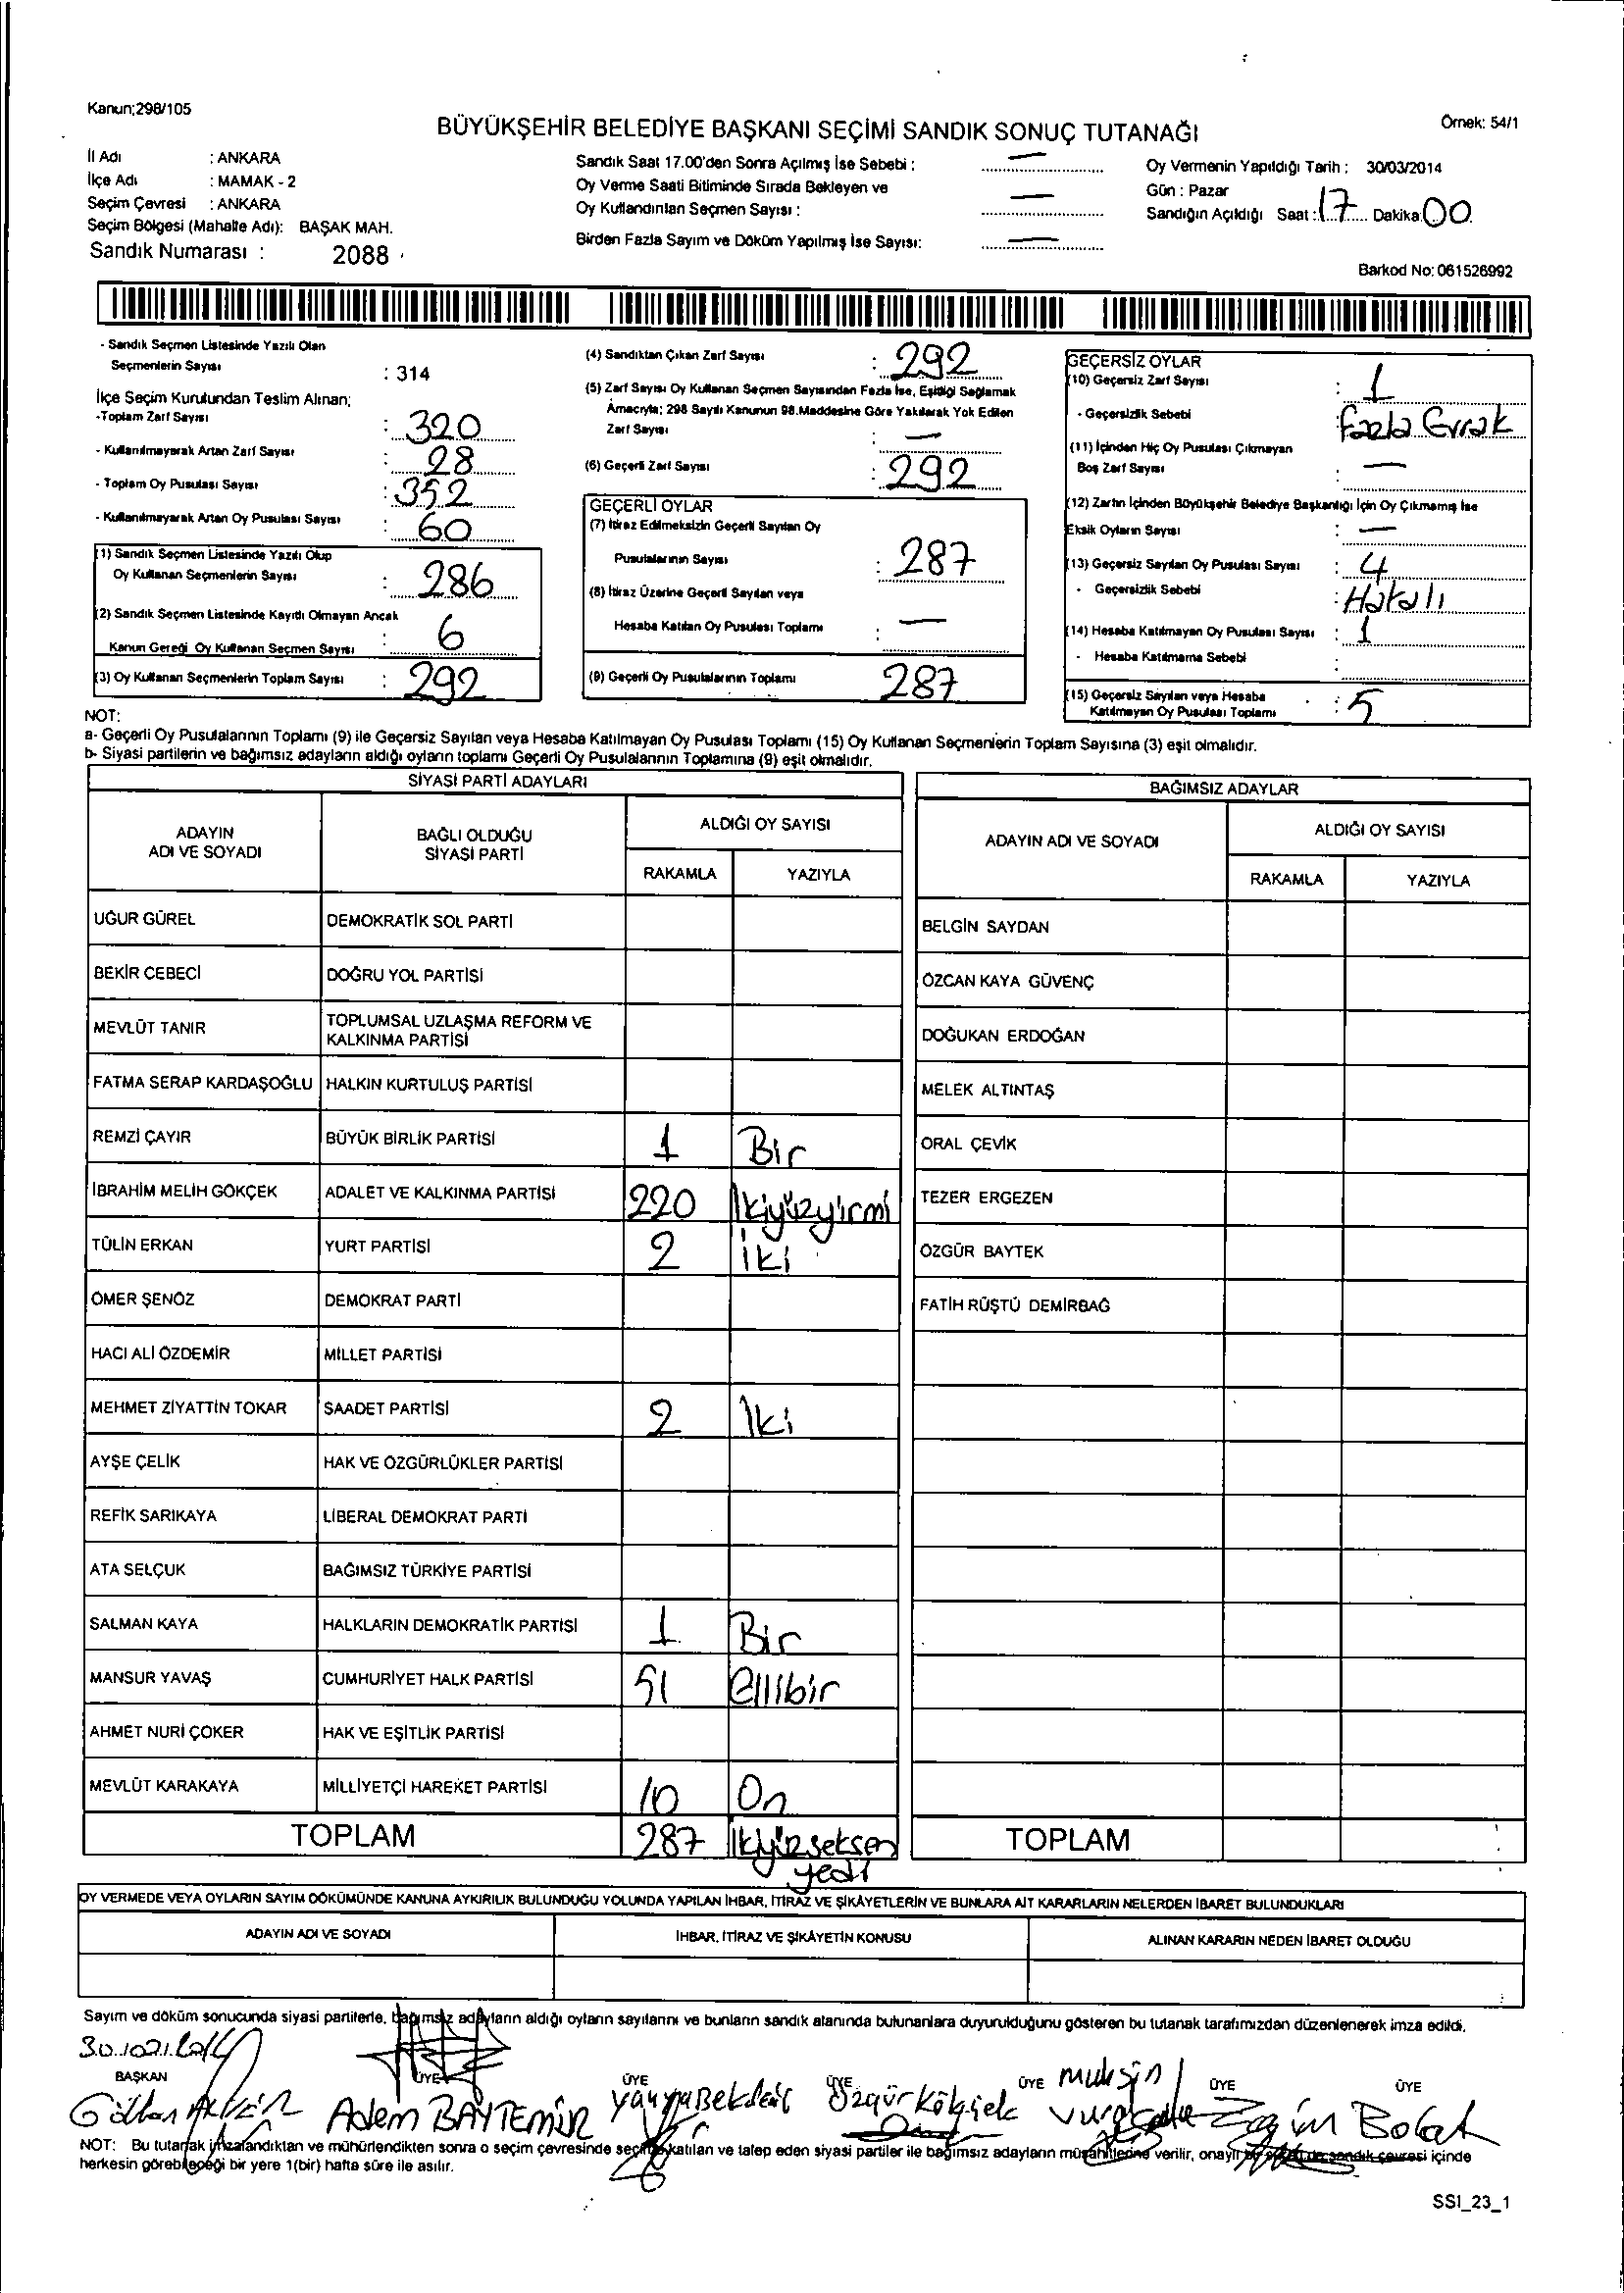 Kanun;298/105
Örnek: 54/1
BÜYÜKŞEHİR BELEDİYE BAŞKANI SEÇİMİ SANDIK SONUÇ TUTANAĞI
İl Adı : ANKARA
İlçe Adı : MAMAK - 2
Seçim Çevresi : ANKARA
Seçim Bölgesi (Mahalle Adı): BAŞAK MAH.
Sandık Numarası : 2088
Sandık Saat 17.00'den Sonra Açılmış İse Sebebi : —
Oy Verme Saati Bitiminde Sırada Bekleyen ve
Oy Kullandırılan Seçmen Sayısı : —
Birden Fazla Sayım ve Döküm Yapılmış İse Sayısı: —
Oy Vermenin Yapıldığı Tarih : 30/03/2014
Gün : Pazar
Sandığın Açıldığı Saat : 17 Dakika 00
Barkod No: 061526992
- Sandık Seçmen Listesinde Yazılı Olan
Seçmenlerin Sayısı : 314
İlçe Seçim Kurulundan Teslim Alınan;
-Toplam Zarf Sayısı : 320
- Kullanılmayarak Artan Zarf Sayısı : 28
- Toplam Oy Pusulası Sayısı : 352
- Kullanılmayarak Artan Oy Pusulası Sayısı : 60
(1) Sandık Seçmen Listesinde Yazılı Olup
Oy Kullanan Seçmenlerin Sayısı : 286
(2) Sandık Seçmen Listesinde Kayıtlı Olmayan Ancak
Kanun Gereği Oy Kullanan Seçmen Sayısı : 6
(3) Oy Kullanan Seçmenlerin Toplam Sayısı : 292
(4) Sandıktan Çıkan Zarf Sayısı : 292
(5) Zarf Sayısı Oy Kullanan Seçmen Sayısından Fazla İse, Eşitliği Sağlamak
Amacıyla; 298 Sayılı Kanunun 98.Maddesine Göre Yakılarak Yok Edilen
Zarf Sayısı : —
(6) Geçerli Zarf Sayısı : 292
GEÇERLİ OYLAR
(7) İtiraz Edilmeksizin Geçerli Sayılan Oy
Pusulalarının Sayısı : 287
(8) İtiraz Üzerine Geçerli Sayılan veya
Hesaba Katılan Oy Pusulası Toplamı : —
(9) Geçerli Oy Pusulalarının Toplamı 287
GEÇERSİZ OYLAR
(10) Geçersiz Zarf Sayısı : 1
- Geçersizlik Sebebi : Fazla Evrak
(11) İçinden Hiç Oy Pusulası Çıkmayan
Boş Zarf Sayısı : —
(12) Zarfın İçinden Büyükşehir Belediye Başkanlığı İçin Oy Çıkmamış İse
Eksik Oyların Sayısı : —
(13) Geçersiz Sayılan Oy Pusulası Sayısı : 4
- Geçersizlik Sebebi : Hatalı
(14) Hesaba Katılmayan Oy Pusulası Sayısı : 1
- Hesaba Katılmama Sebebi :
(15) Geçersiz Sayılan veya Hesaba
Katılmayan Oy Pusulası Toplamı : 5
NOT:
a- Geçerli Oy Pusulalarının Toplamı (9) ile Geçersiz Sayılan veya Hesaba Katılmayan Oy Pusulası Toplamı (15) Oy Kullanan Seçmenlerin Toplam Sayısına (3) eşit olmalıdır.
b- Siyasi partilerin ve bağımsız adayların aldığı oyların toplamı Geçerli Oy Pusulalarının Toplamına (9) eşit olmalıdır.
SİYASİ PARTİ ADAYLARI
ADAYIN ADI VE SOYADI BAĞLI OLDUĞU SİYASİ PARTİ ALDIĞI OY SAYISI
RAKAMLA YAZIYLA
UĞUR GÜREL DEMOKRATİK SOL PARTİ
BEKİR CEBECİ DOĞRU YOL PARTİSİ
MEVLÜT TANIR TOPLUMSAL UZLAŞMA REFORM VE
KALKINMA PARTİSİ
FATMA SERAP KARDAŞOĞLU HALKIN KURTULUŞ PARTİSİ
REMZİ ÇAYIR BÜYÜK BİRLİK PARTİSİ 1 Bir
İBRAHİM MELİH GÖKÇEK ADALET VE KALKINMA PARTİSİ 220 İkiyüzyirmi
TÜLİN ERKAN YURT PARTİSİ 2 İki
ÖMER ŞENÖZ DEMOKRAT PARTİ
HACI ALİ ÖZDEMİR MİLLET PARTİSİ
MEHMET ZİYATTİN TOKAR SAADET PARTİSİ 2 İki
AYŞE ÇELİK HAK VE ÖZGÜRLÜKLER PARTİSİ
REFİK SARIKAYA LİBERAL DEMOKRAT PARTİ
ATA SELÇUK BAĞIMSIZ TÜRKİYE PARTİSİ
SALMAN KAYA HALKLARIN DEMOKRATİK PARTİSİ 1 Bir
MANSUR YAVAŞ CUMHURİYET HALK PARTİSİ 51 Ellibir
AHMET NURİ ÇÖKER HAK VE EŞİTLİK PARTİSİ
MEVLÜT KARAKAYA MİLLİYETÇİ HAREKET PARTİSİ 10 On
TOPLAM 287 İkiyüzseksen
yedi
BAĞIMSIZ ADAYLAR
ADAYIN ADI VE SOYADI ALDIĞI OY SAYISI
RAKAMLA YAZIYLA
BELGİN SAYDAN
ÖZCAN KAYA GÜVENÇ
DOĞUKAN ERDOĞAN
MELEK ALTINTAŞ
ORAL ÇEVİK
TEZER ERGEZEN
ÖZGÜR BAYTEK
FATİH RÜŞTÜ DEMİRBAĞ
TOPLAM
OY VERMEDE VEYA OYLARIN SAYIM DÖKÜMÜNDE KANUNA AYKIRILIK BULUNDUĞU YOLUNDA YAPILAN İHBAR, İTİRAZ VE ŞİKÂYETLERİN VE BUNLARA AİT KARARLARIN NELERDEN İBARET BULUNDUKLARI
ADAYIN ADI VE SOYADI İHBAR, İTİRAZ VE ŞİKÂYETİN KONUSU ALINAN KARARIN NEDEN İBARET OLDUĞU
Sayım ve döküm sonucunda siyasi partilerle, bağımsız adayların aldığı oyların sayılarını ve bunların sandık alanında bulunanlara duyurulduğunu gösteren bu tutanak tarafımızdan düzenlenerek imza edildi.
BAŞKAN ÜYE ÜYE ÜYE ÜYE ÜYE ÜYE
Adem BAYTEMİR Özgür Muhsin Bolat
NOT: Bu tutanak imzalandıktan ve mühürlendikten sonra o seçim çevresinde seçime katılan ve talep eden siyasi partiler ile bağımsız adayların müşahitlerine verilir, onaylı sandık çevresi içinde
herkesin görebileceği bir yere 1(bir) hafta süre ile asılır.
SSI_23_1